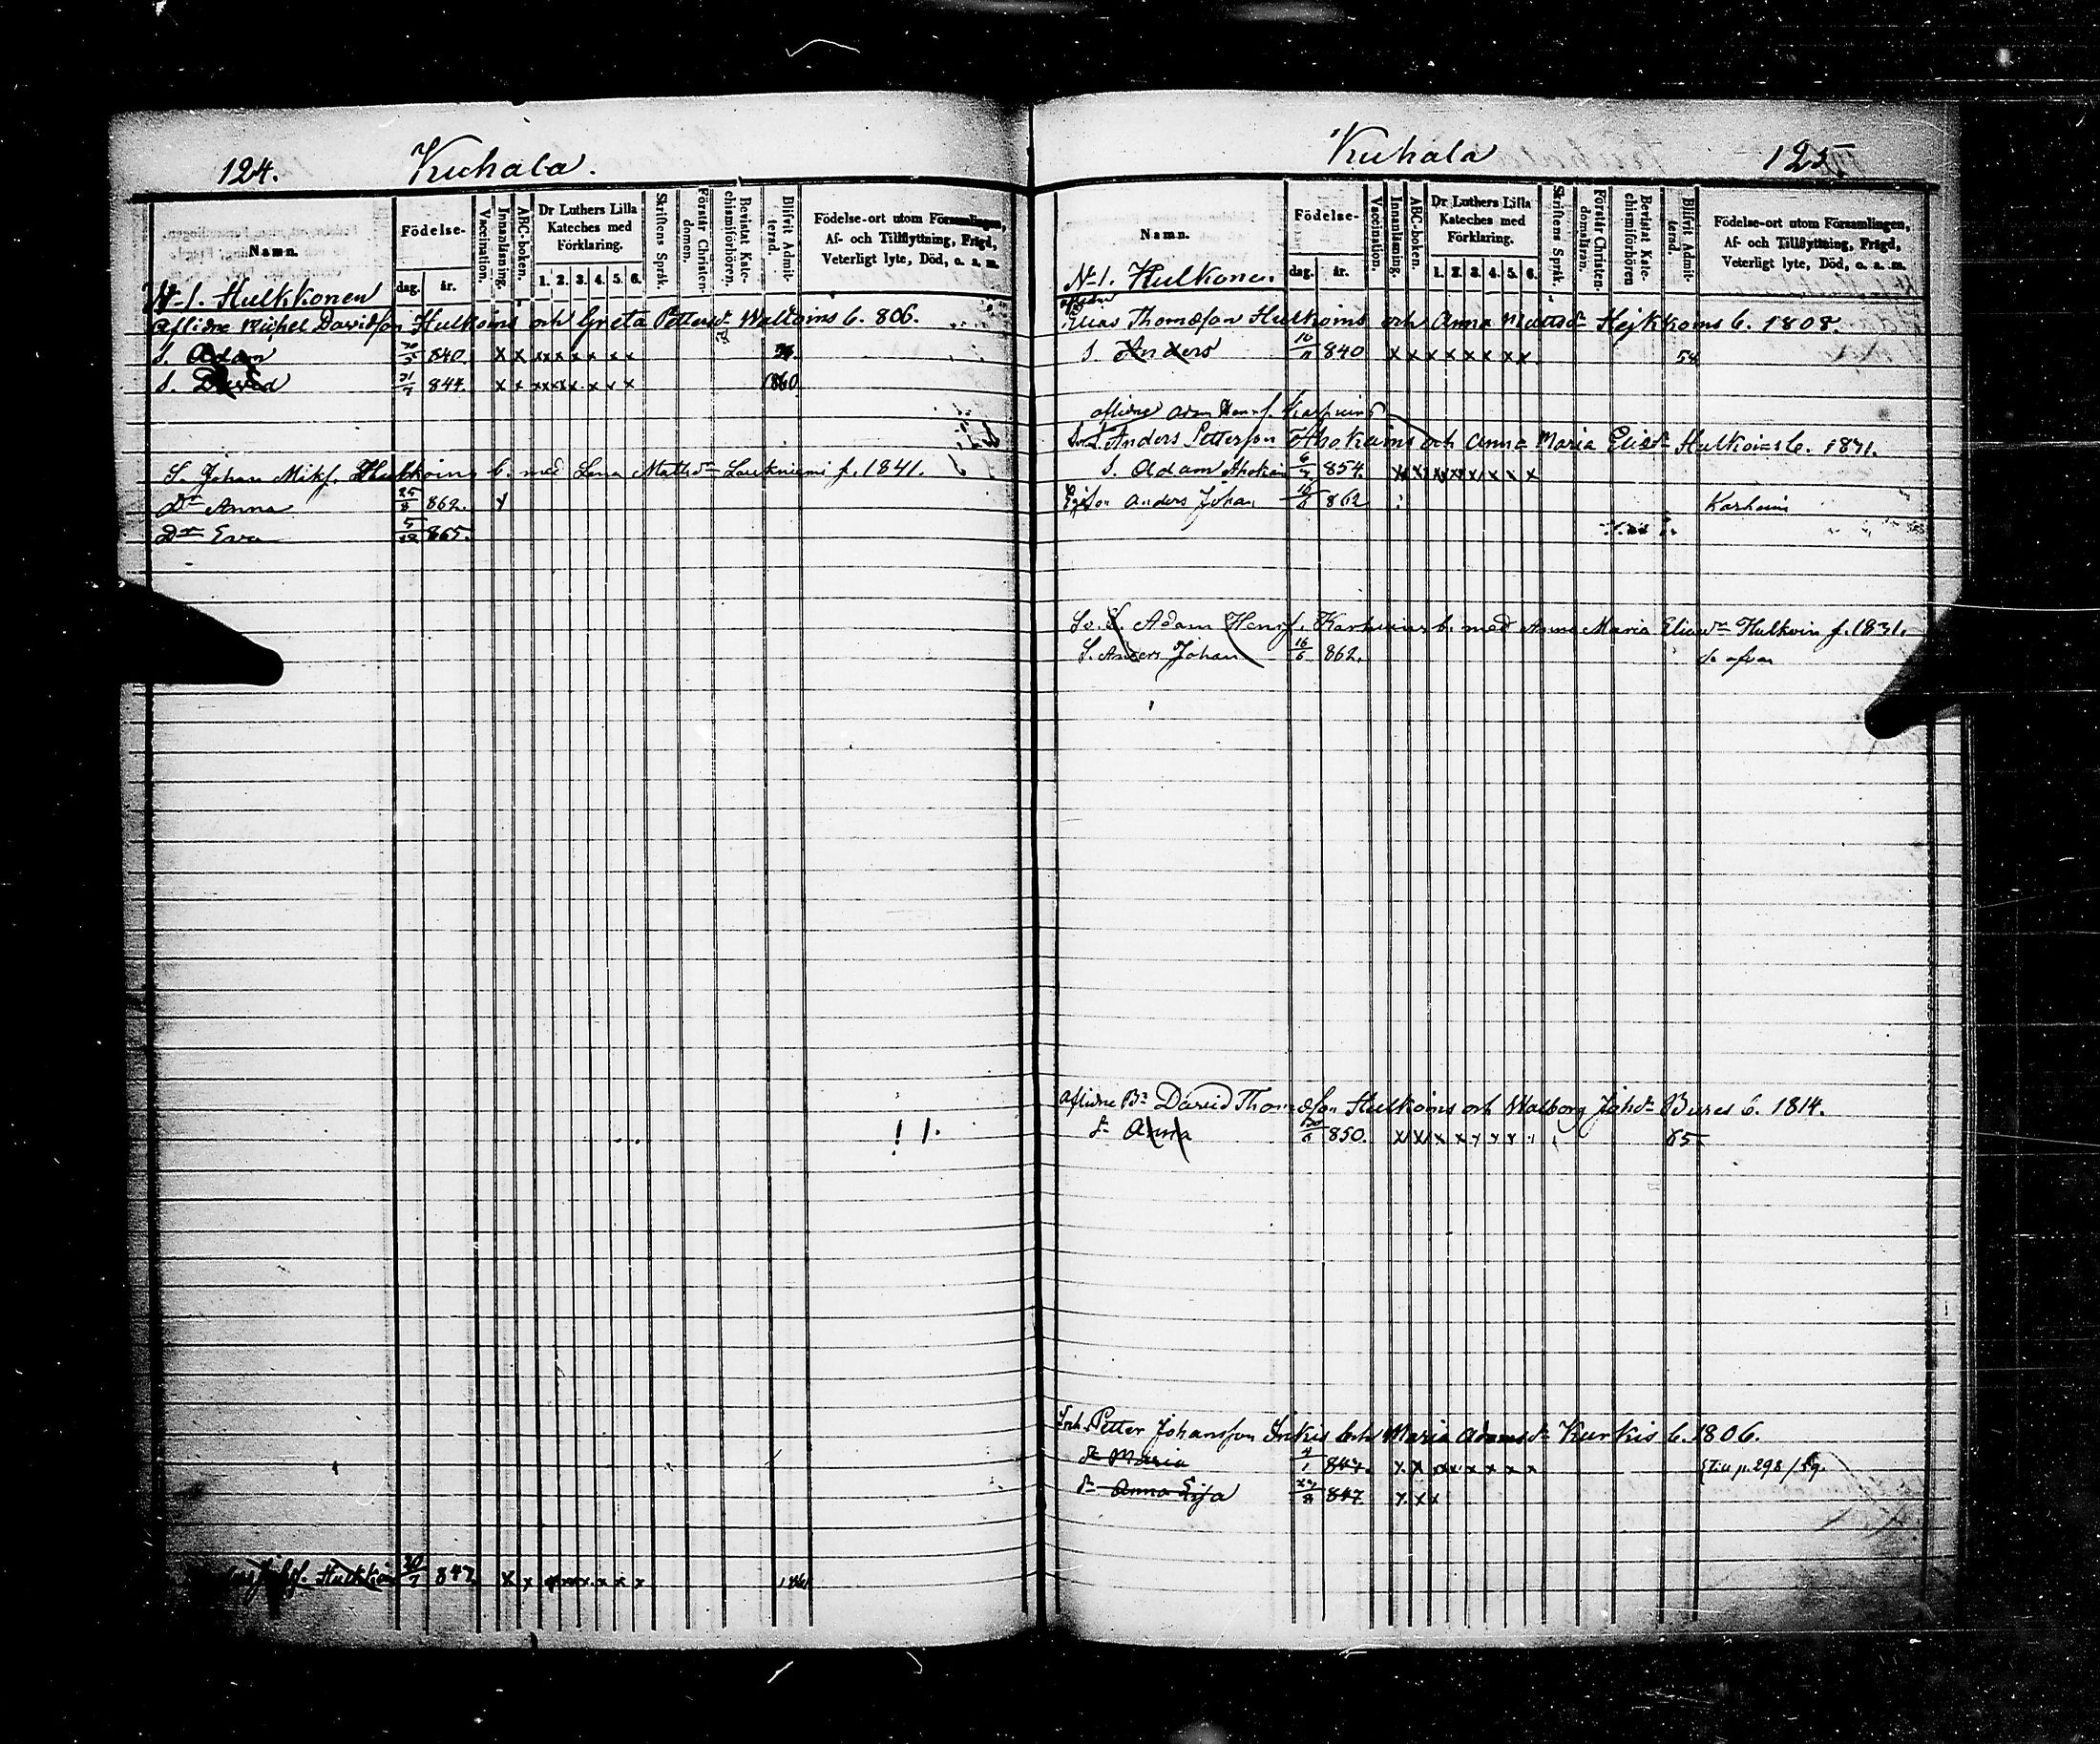 124.
Kuhala.
Namn.
Födelse-
dag. år.
Vaccination.
Innanläsning.
ABC-boken.
Dr Luthers Lilla Kateches med Förklaring.
1. 2. 3. 4. 5. 6.
Skriftens Språk.
Förstår Christendomen.
Bevistat Katechismiförhören.
Blifvit Admitterad.
Födelse-ort utom Församlingen,
Af- och Tillflyttning, Frägd,
Veterligt lyte, Död, o. s. m.
N-1. Hulkkonen
Aflidne Michel Davidson Hulkoins och Greta Pettersdr Waltoins b. 806.
S. Adam 840. x x x x x x x x
S. David 31/7 844. x x x x x x x x 1860
S. Johan Mik. Hulkkoins b. med Lena Mattsdr Laukniemi f. 1841.
Dr Anna 25/8 862.
Dr Eva 5/12 865.
Hulkkoin 20/7 847 x x x x x x x x
Kuhala
125.
Namn.
Födelse-
dag. år.
Vaccination.
Innanläsning.
ABC-boken.
Dr Luthers Lilla Kateches med Förklaring.
1. 2. 3. 4. 5. 6.
Skriftens Språk.
Förstår Christendomsläran.
Bevistat Katechismiförhören
Blifvit Admitterad.
Födelse-ort utom Församlingen,
Af- och Tillflyttning, Frägd,
Veterligt lyte, Död, o. s. m.
N-1. Hulkone.
Elias Thomasson Hulkoins och Anna Mattsdr Hejkkoins b. 1808.
S. Anders 840 x x x x x x x x 58
aflidne Adam Henr.
Anders Petterson och Anna Maria Eliasdr Hulkoins b. 1831.
S. Adam 6/7 854. x x x x x x x x
Anders Johan 16/6 862 Karhuin
Adam Henr. Karhuins b. med Anna Maria Eliasdr Hulkoin f. 1831.
S. Anders Johan 16/6 862. se ofvan
Aflidne Bn David Thomasson Hulkoins och Walborg Johdr Bures b. 1814.
dr Anna 850. x x x x x x x 65
Inh. Petter Johansson Inkis och Maria Adamsdr Kurkis b. 1806.
dr Maria 4/1 847. x x x x x x x x p. 298/59.
dr Anna Lisa 27/8 847 x x x